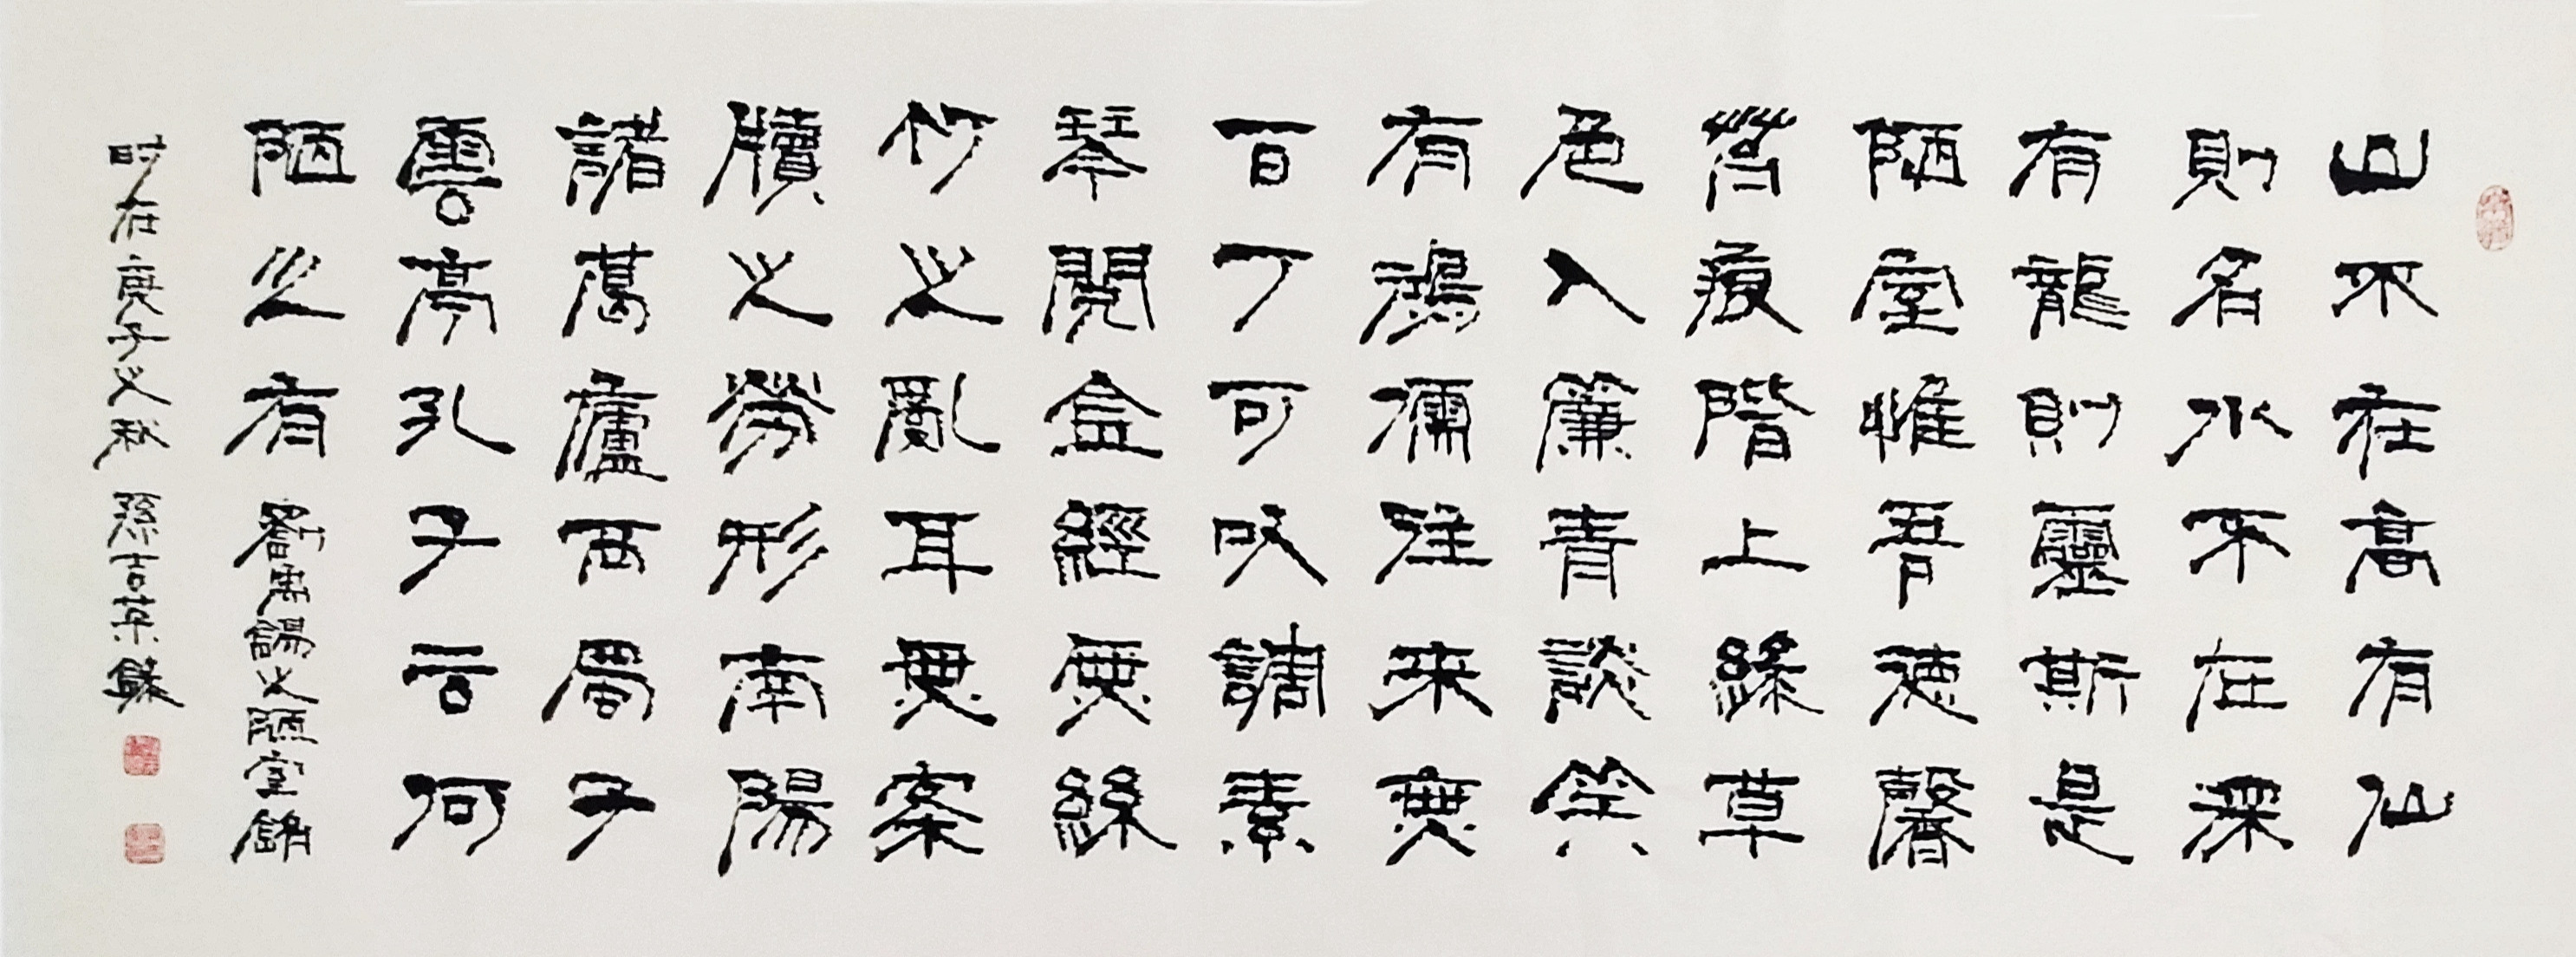 山不在高有仙
則名水不在深
有龍則靈斯是
陋室惟吾德馨
苔痕階上綠草
色入簾青談笑
有鴻儒往來無
百丁可以調素
琴閱金經無絲
竹之亂耳無案
牘之勞形南陽
諸葛廬西蜀子
雲亭孔子云何
陋之有 劉禹錫之陋室銘
时在庚子之秋 孫吉錄